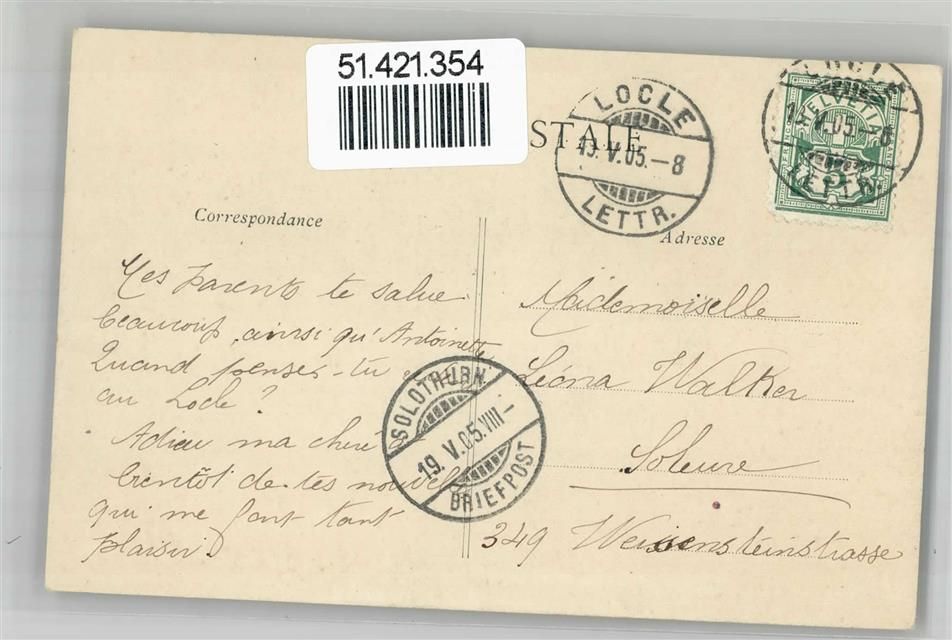 51.421.354
STALE
LOCLE
19. V. 05. – 8
LETTR.
LOCLE
V. 05. – 8
LETTR.
HELVETIA
5
Correspondance
Mes parents te salue
beaucoup, ainsi qu'Antoinette
Quand penses-tu
au Locle?
Adieu ma chère
bientôt de tes nouvelles
qui me font tant
plaisir
SOLOTHURN
19. V. 05. VIII –
BRIEFPOST
Adresse
Mademoiselle
Léona Walker
Soleure
349 Weissensteinstrasse